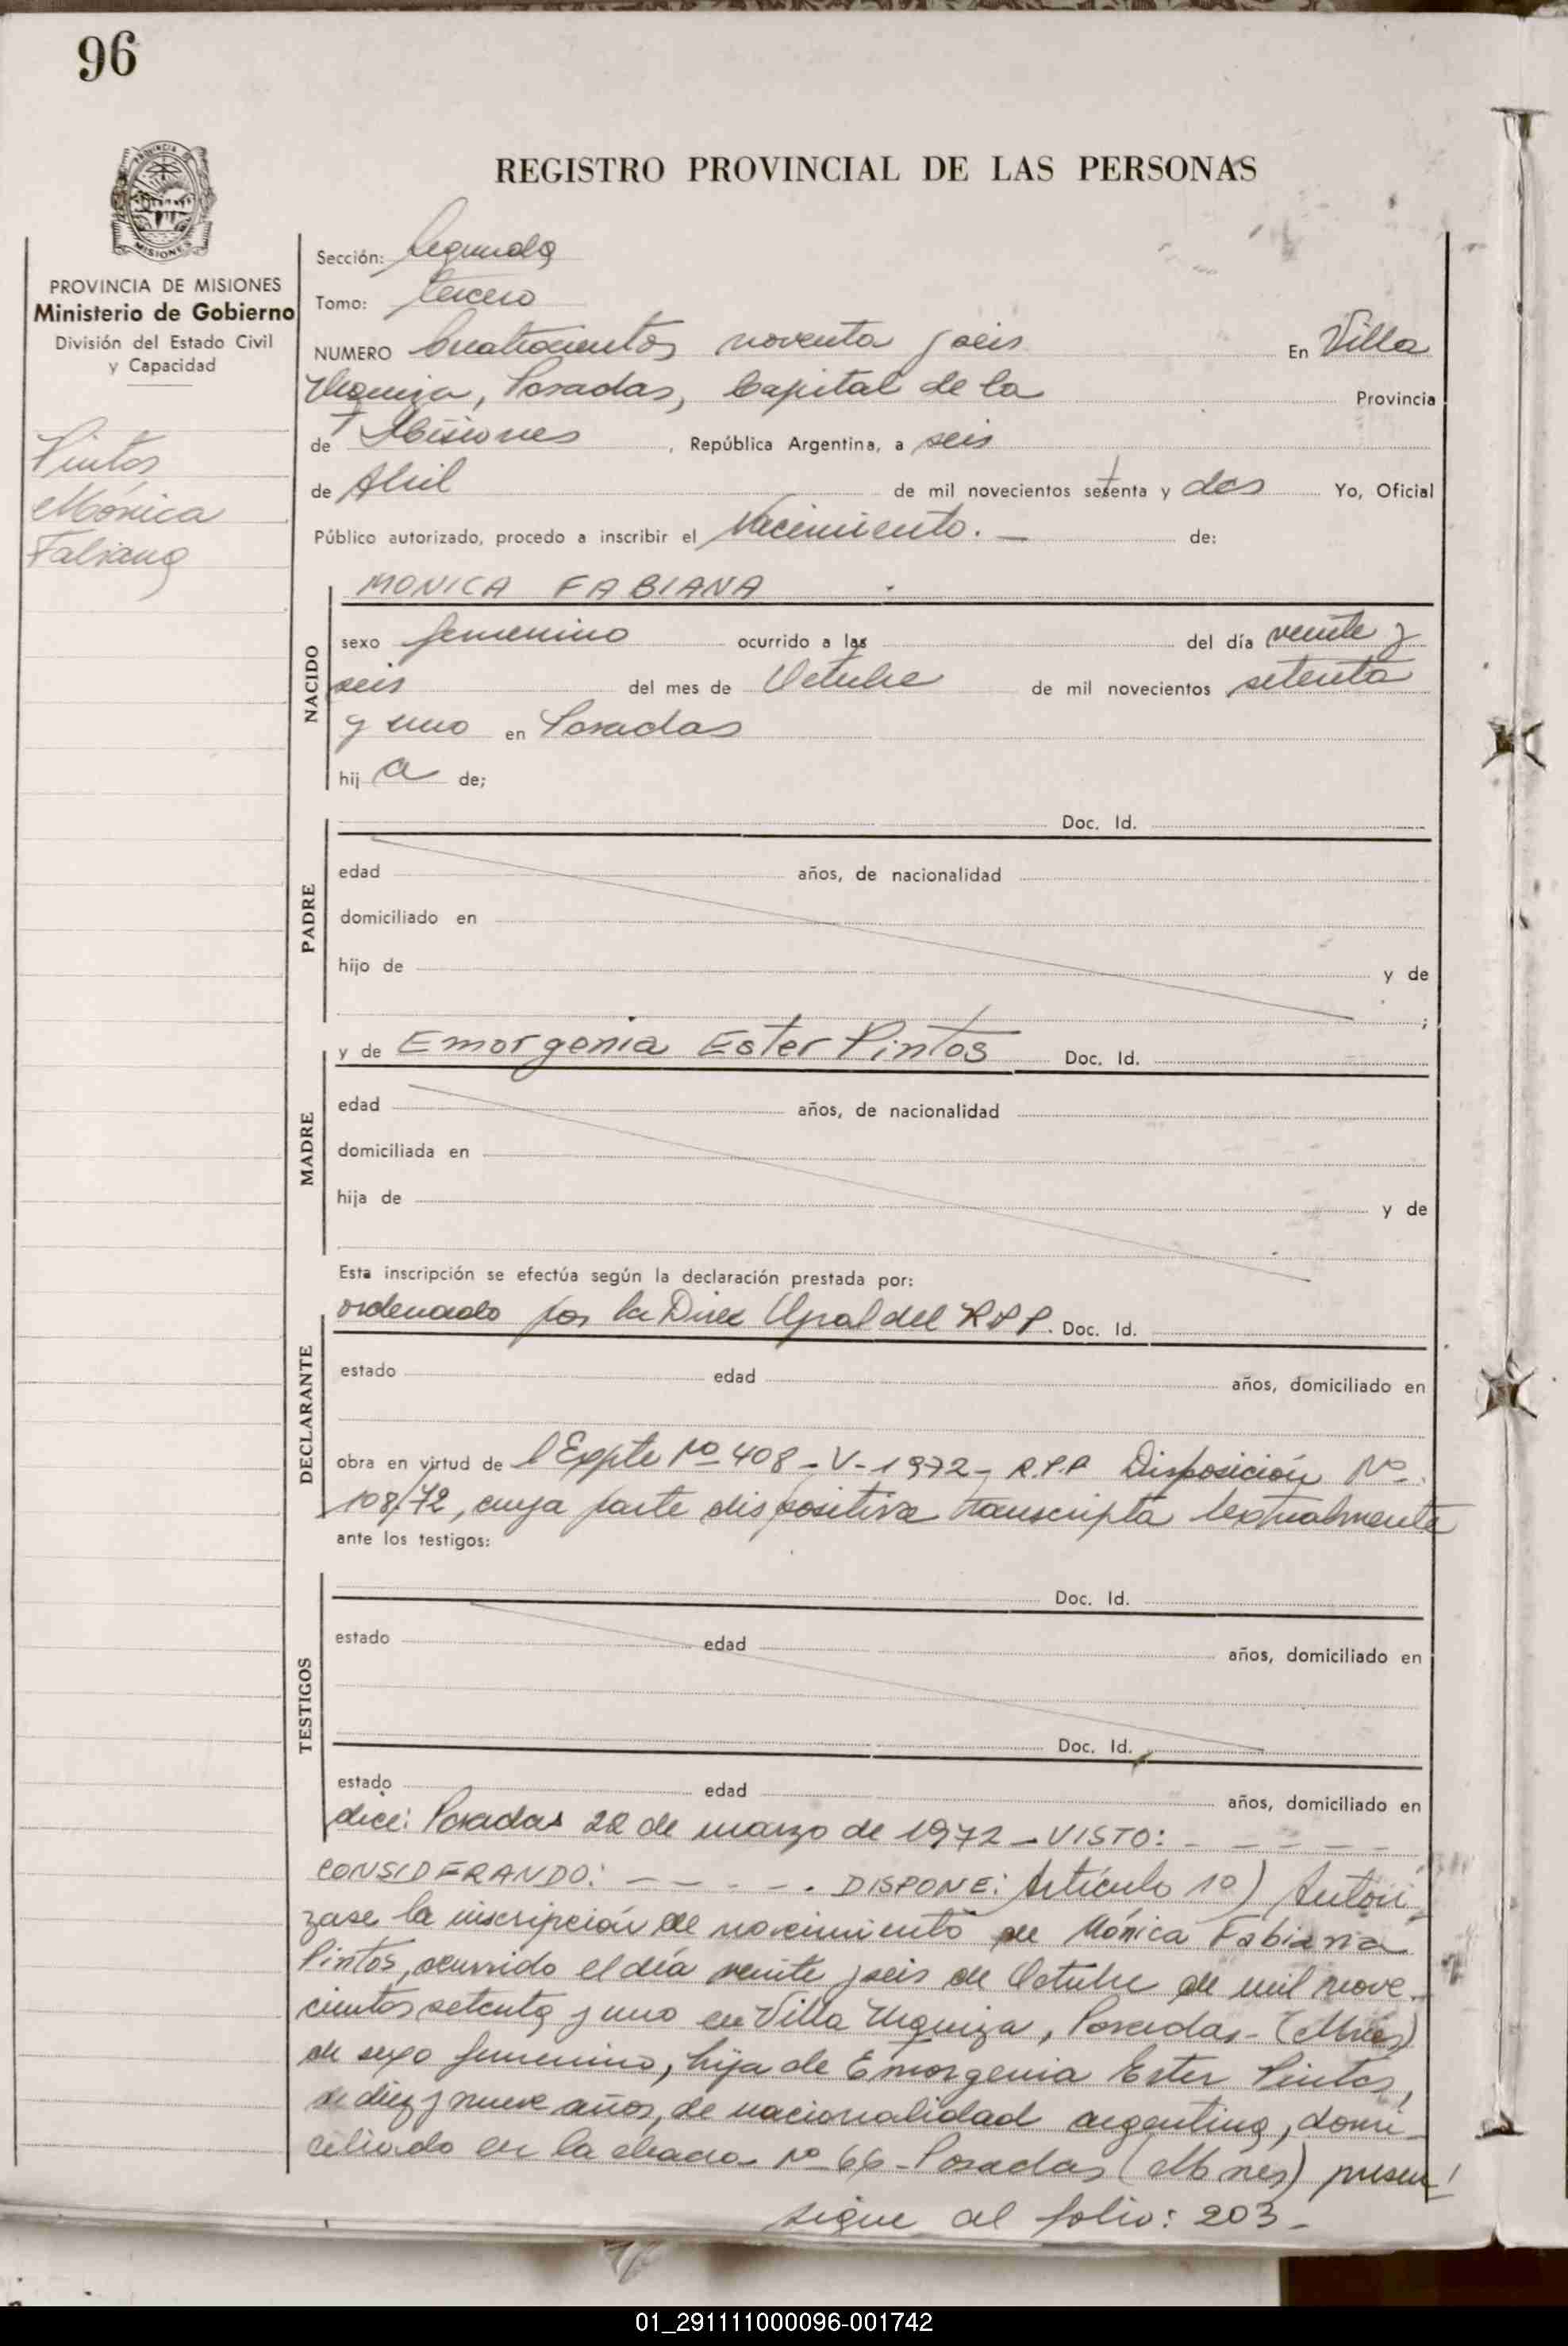 96
PROVINCIA DE
MISIONES
REGISTRO PROVINCIAL DE LAS PERSONAS
PROVINCIA DE MISIONES
Ministerio de Gobierno
División del Estado Civil
y Capacidad
Pintos
Mónica
Fabiana
Sección: Segunda
Tomo: tercero
NUMERO Cuatrocientos noventa y seis En Villa
Urquiza, Posadas, Capital de la Provincia
de Misiones, República Argentina, a seis
de Abril de mil novecientos setenta y dos Yo, Oficial
Público autorizado, procedo a inscribir el Nacimiento. — de:
NACIDO
MONICA FABIANA
sexo femenino ocurrido a las del día veinte y
seis del mes de Octubre de mil novecientos setenta
y uno en Posadas
hij a de;
PADRE
Doc. Id.
edad años, de nacionalidad
domiciliado en
hijo de y de
;
MADRE
y de Emorgenia Ester Pintos Doc. Id.
edad años, de nacionalidad
domiciliada en
hija de y de
Esta inscripción se efectúa según la declaración prestada por:
DECLARANTE
ordenado por la Direc Gral del R.P.P. Doc. Id.
estado edad años, domiciliado en
obra en virtud de l Expte Nº 408-V-1972- R.P.P Disposición Nº
108/72, cuya parte dispositiva transcripta textualmente
ante los testigos:
TESTIGOS
Doc. Id.
estado edad años, domiciliado en
Doc. Id.
estado edad años, domiciliado en
dice: Posadas 22 de marzo de 1972 - VISTO: - - - - -
CONSIDERANDO: - - - - . DISPONE: Artículo 1º) Autori
zase la inscripción de nacimiento de Mónica Fabiana
Pintos, ocurrido el día veinte y seis de Octubre de mil nove-
cientos setenta y uno en Villa Urquiza, Posadas - (Mnes)
de sexo femenino, hija de Emorgenia Ester Pintos,
de diez y nueve años, de nacionalidad argentina, domi-
ciliado en la chacra Nº 66 - Posadas (Mnes) presen
sigue al folio: 203-
01_291111000096-001742